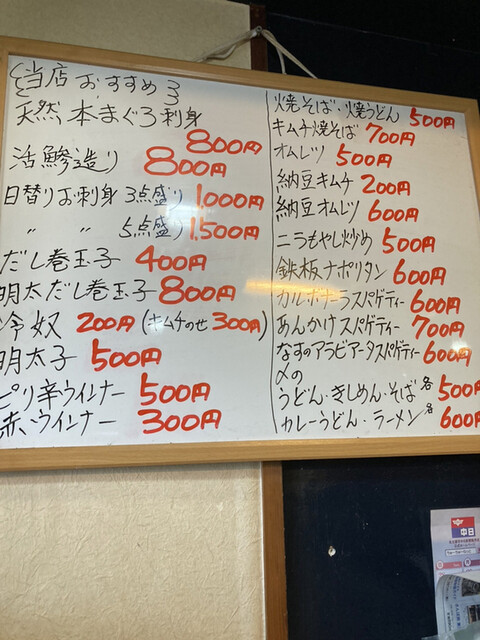 当店おすすめ
天然 本まぐろ刺身
800円
活鯵造り 800円
日替りお刺身 3点盛り 1,000円
〃 〃 5点盛り 1,500円
だし巻玉子 400円
明太だし巻玉子 800円
冷奴 200円 (キムチのせ 300円)
明太子 500円
ピリ辛ウインナー 500円
赤いウインナー 300円
焼そば・焼うどん 500円
キムチ焼そば 700円
オムレツ 500円
納豆キムチ 200円
納豆オムレツ 600円
ニラもやし炒め 500円
鉄板ナポリタン 600円
カルボナーラスパゲティー 600円
あんかけスパゲティー 700円
なすのアラビアータスパゲティー 600円
〆の
うどん・きしめん・そば 各 500円
カレーうどん・ラーメン 各 600円
中日